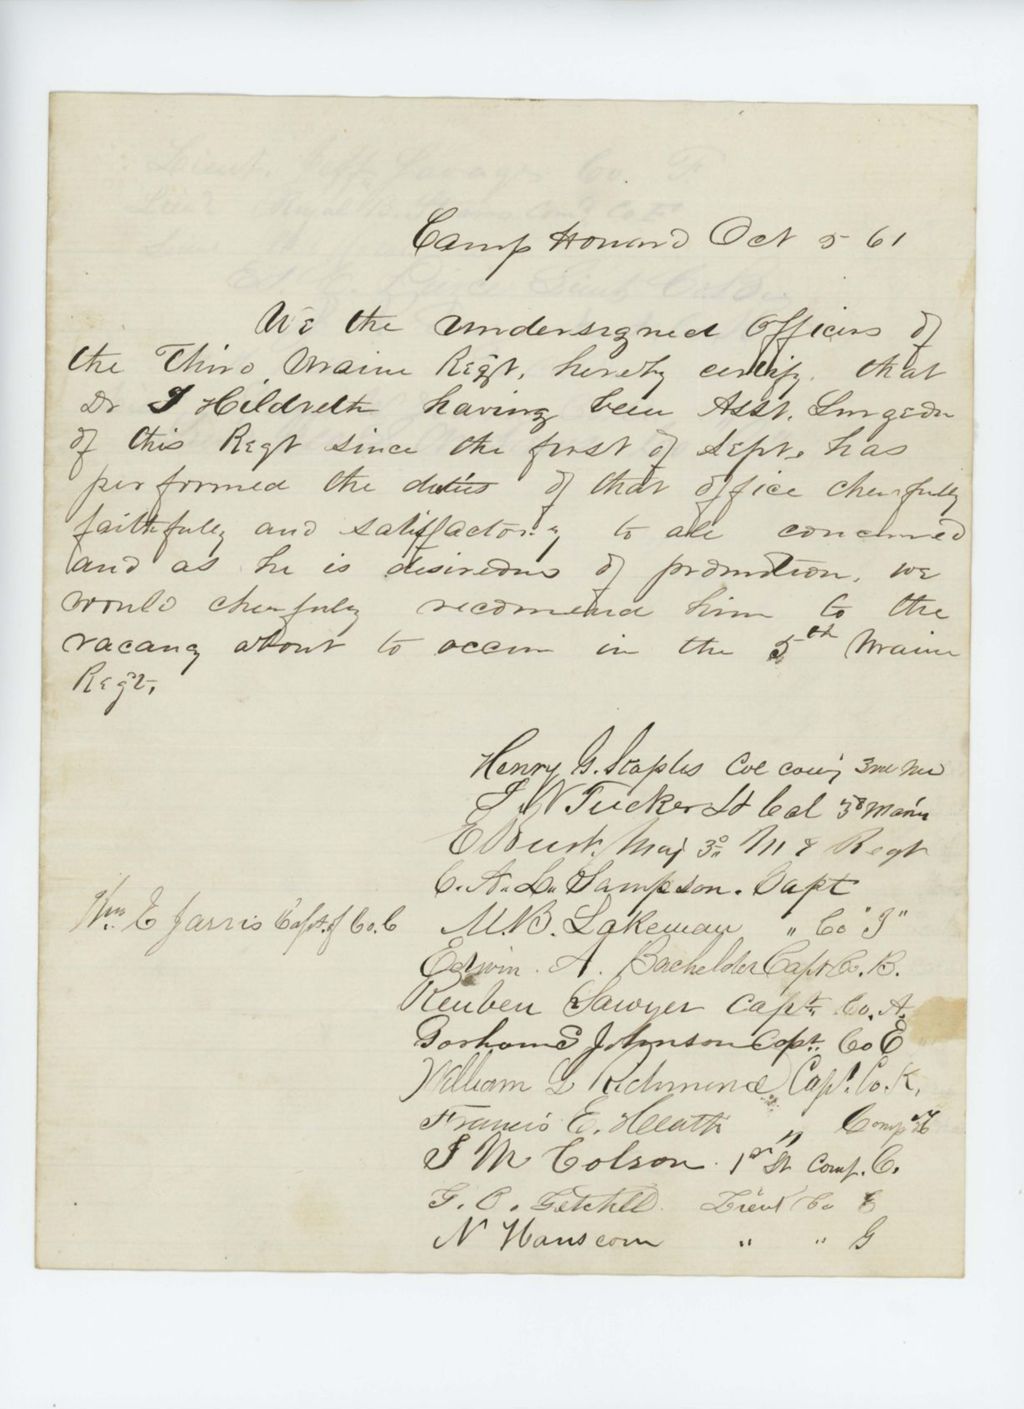 Camp Howard Oct 5 61
We the undersigned Officers of
the Third Maine Regt, hereby certify that
Dr T Hildreth having been Asst. Surgeon
of this Regt since the first of Sept. has
performed the duties of that office cheerfully
faithfully and satisfactory to all concerned
and as he is desireous of promotion, we
would cheerfully recomend him to the
vacancy about to occur in the 5th Maine
Regt,
Henry G. Staples Col 3rd Me
Tucker Lt Col 3d Maine
E Burt, Maj 3d M E Regt
C. A. L. Sampson. Capt
Wm. E Jarvis Capt. of Co. C
M.B. Lakeman " Co "I"
Edwin. A. Bachelder Capt Co. B.
Reuben Sawyer Capt. Co. A.
Gorham S Johnson Capt. Co E
William L Richmond Capt. Co. K.
Francis E. Heath " Comp
J M Colson. 1st Lt Comp. C.
G. O. Getchell. Lieut Co
N Hanscom " " G